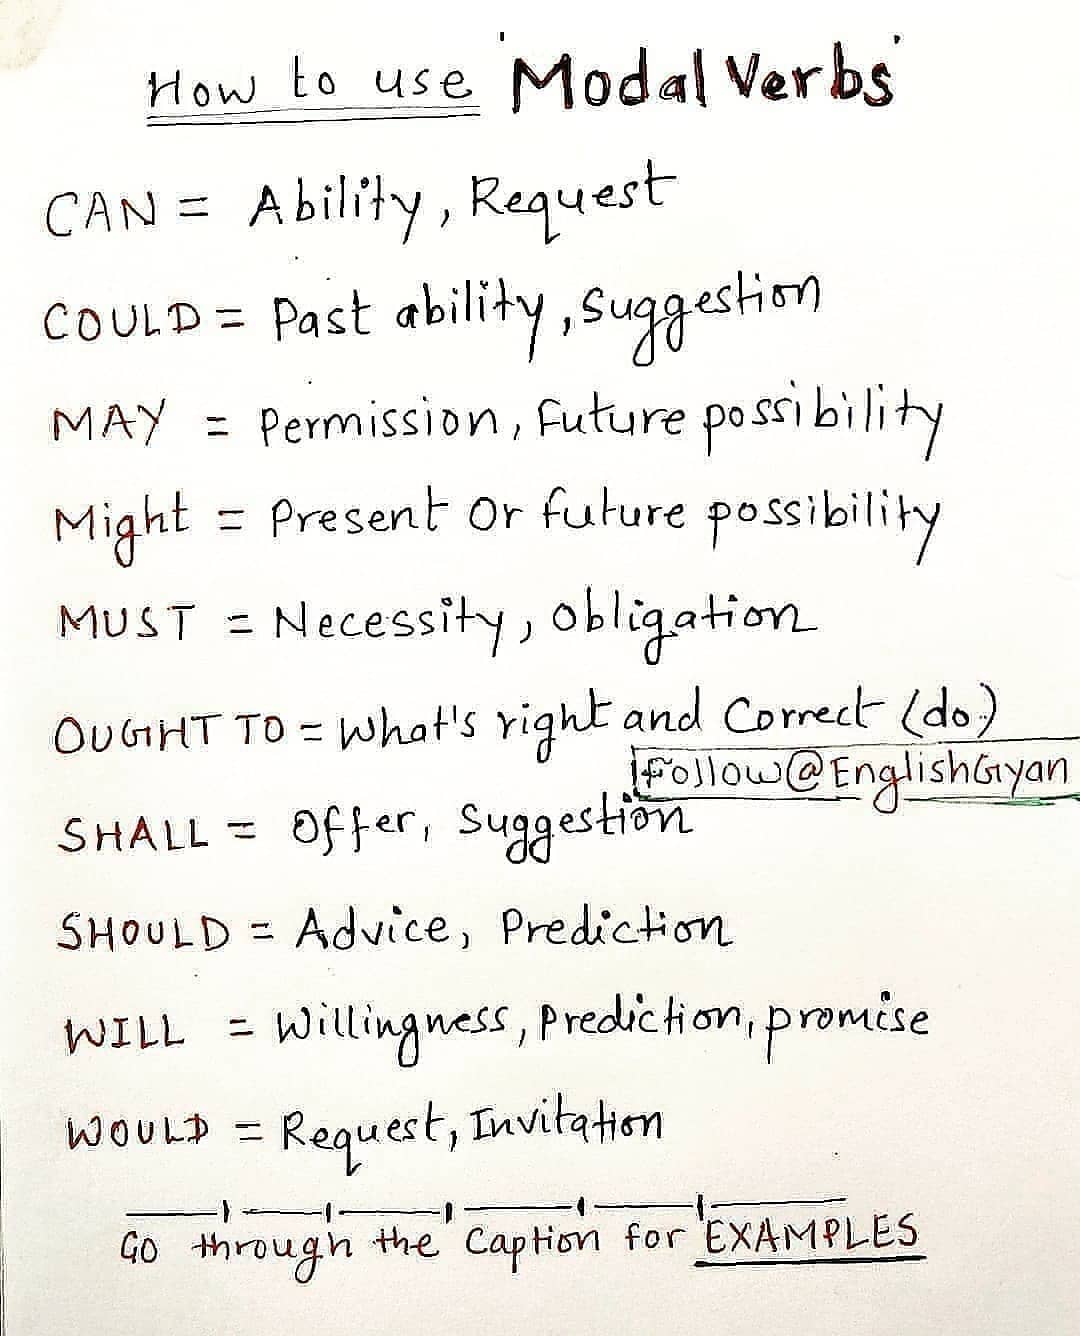 How to use 'Modal Verbs'
CAN = Ability, Request
COULD = Past ability, suggestion
MAY = Permission, Future possibility
Might = Present Or future possibility
MUST = Necessity, Obligation
OUGHT TO = What's right and Correct (do)
Follow@EnglishGyan
SHALL = Offer, Suggestion
SHOULD = Advice, Prediction
WILL = Willingness, Prediction, promise
WOULD = Request, Invitation
Go through the Caption for EXAMPLES